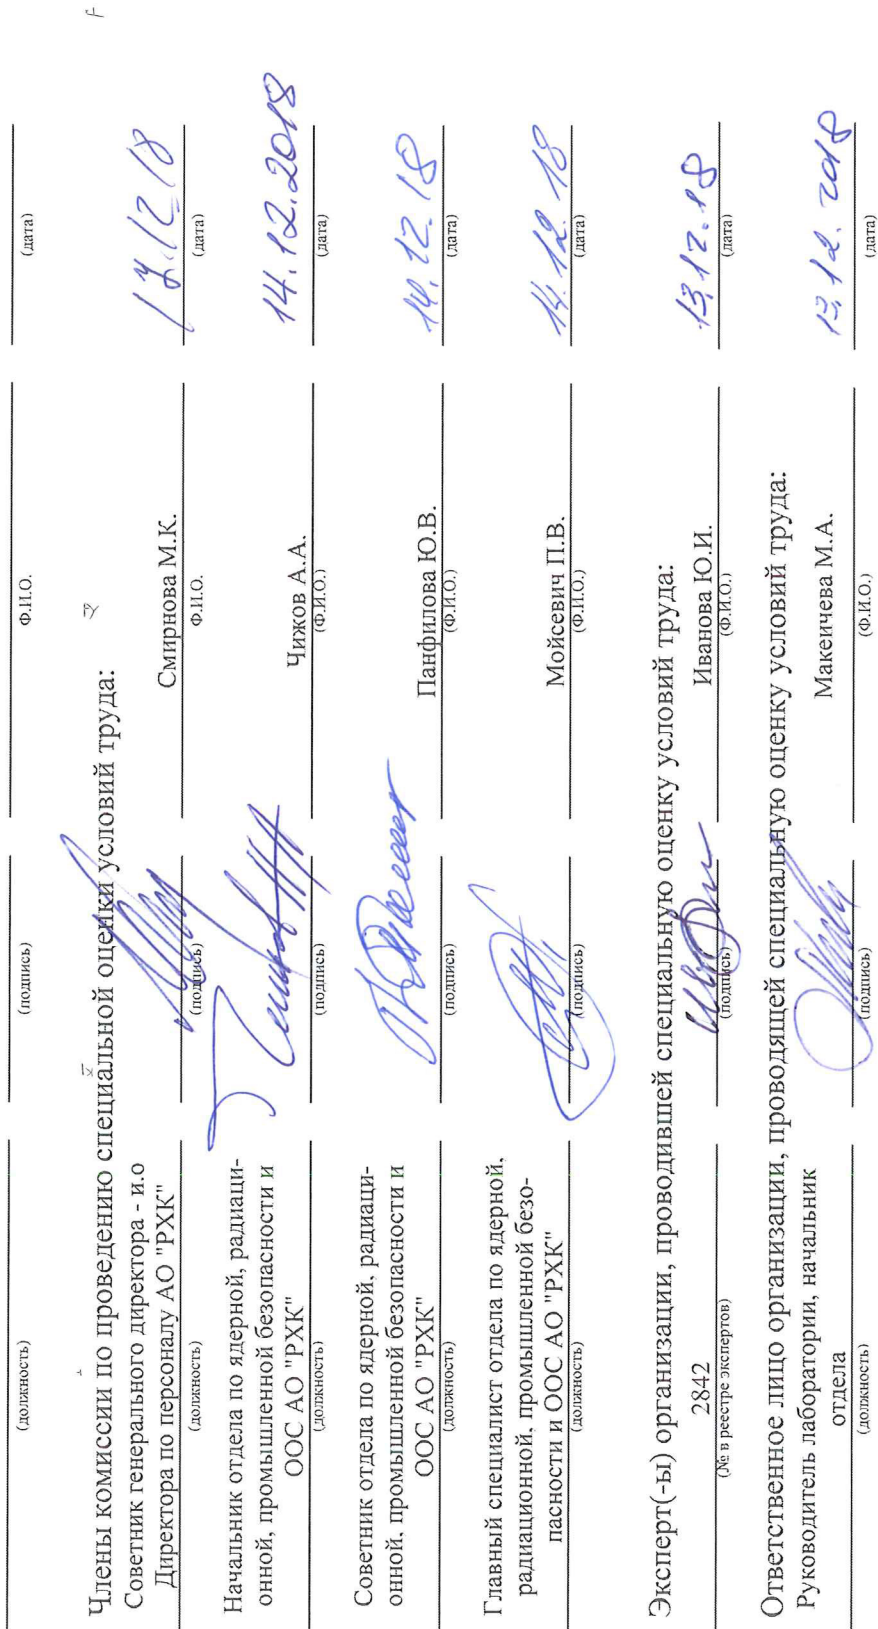 (должность) (подпись) Ф.И.О. (дата)
Члены комиссии по проведению специальной оценки условий труда:
Советник генерального директора - и.о
Директора по персоналу АО "РХК" Смирнова М.К. 12.18
(должность) (подпись) Ф.И.О. (дата)
Начальник отдела по ядерной, радиаци-
онной, промышленной безопасности и
ООС АО "РХК" Чижов А.А. 14.12.2018
(должность) (подпись) (Ф.И.О.) (дата)
Советник отдела по ядерной, радиаци-
онной, промышленной безопасности и
ООС АО "РХК" Панфилова Ю.В. 14.12.18
(должность) (подпись) (Ф.И.О.) (дата)
Главный специалист отдела по ядерной,
радиационной, промышленной безо-
пасности и ООС АО "РХК" Мойсевич П.В. 14.12.18
(должность) (подпись) (Ф.И.О.) (дата)
Эксперт(-ы) организации, проводившей специальную оценку условий труда:
2842 Иванова Ю.И. 13.12.18
(№ в реестре экспертов) (подпись) (Ф.И.О.) (дата)
Ответственное лицо организации, проводящей специальную оценку условий труда:
Руководитель лаборатории, начальник
отдела Макеичева М.А. 13.12.2018
(должность) (подпись) (Ф.И.О.) (дата)